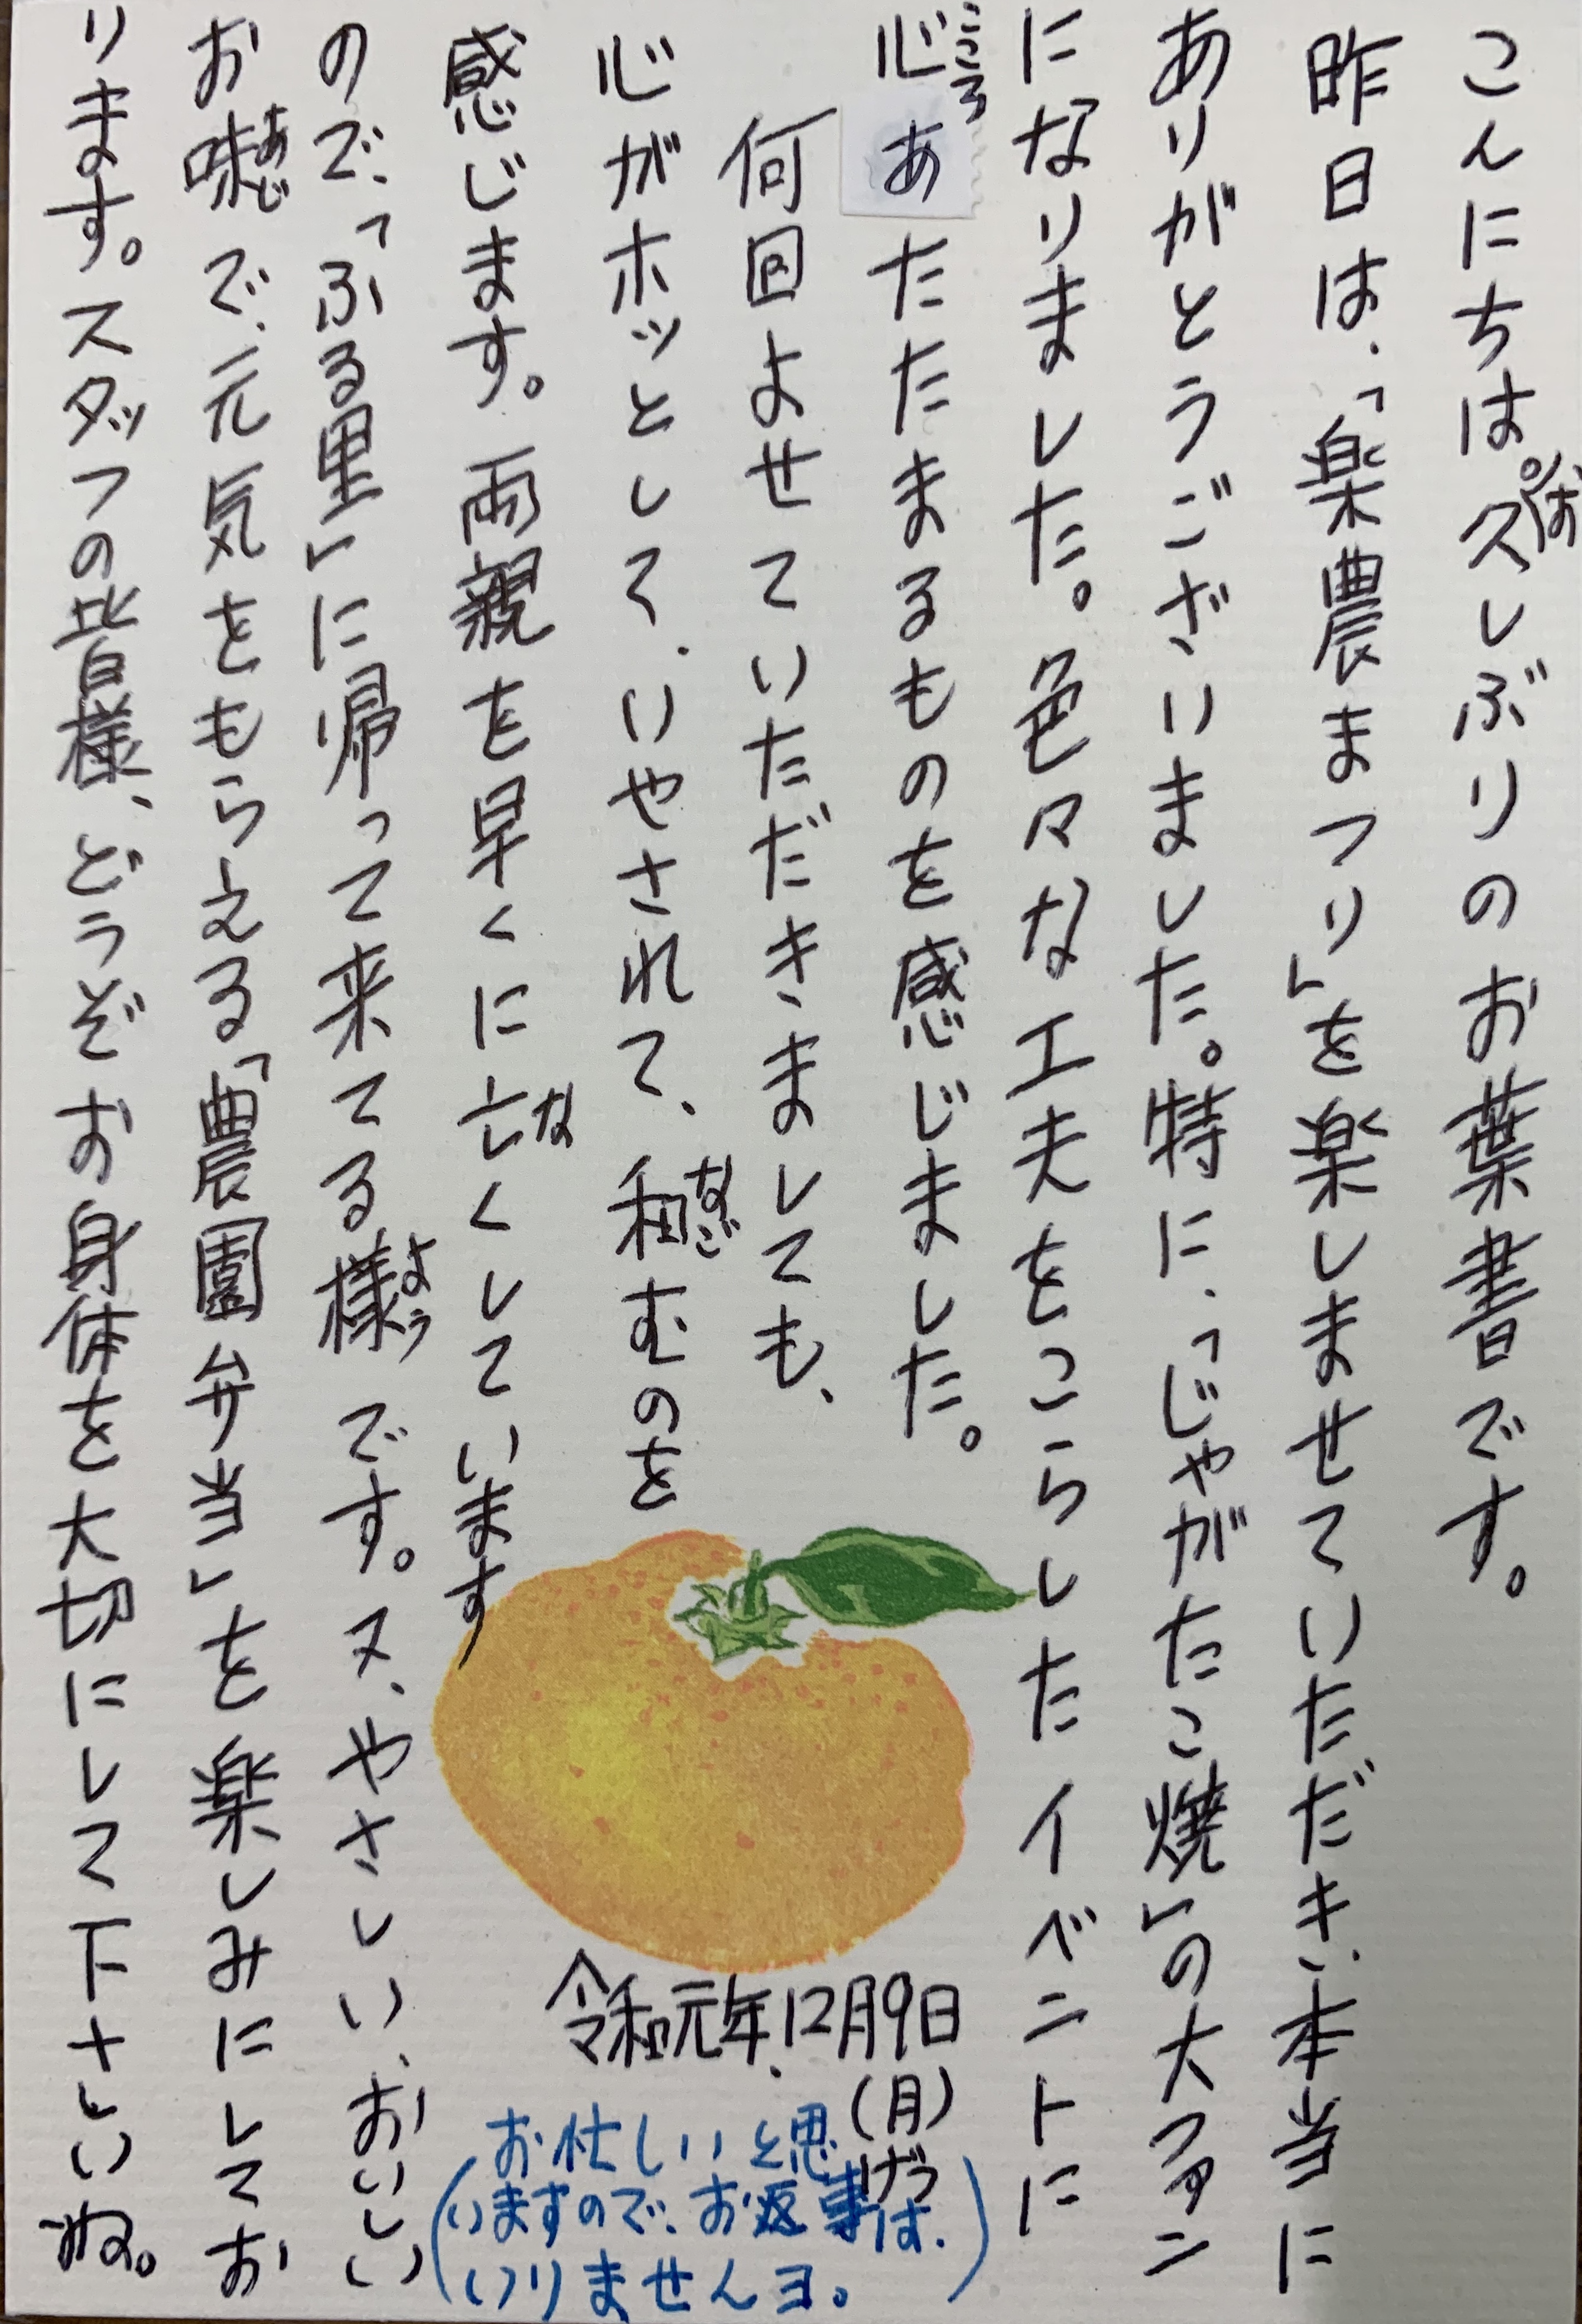 こんにちは。久しぶりのお葉書です。
昨日は、「楽農まつり」を楽しませていただき、本当に
ありがとうございました。特に、「じゃがたこ焼」の大ファン
になりました。色々な工夫をこらしたイベントに
心あたたまるものを感じました。
何回よせていただきましても、
心がホッとして、いやされて、和むのを
感じます。両親を早くに亡くしています
ので、「ふる里」に帰って来てる様です。又、やさしい、おいしい
お味で、元気をもらえる「農園弁当」を楽しみにしてお
ります。スタッフの皆様、どうぞお身体を大切にして下さいね。
令和元年.12月9日
(月)
げつ
(お忙しいと思
いますので、お返事は、
いりませんヨ。)